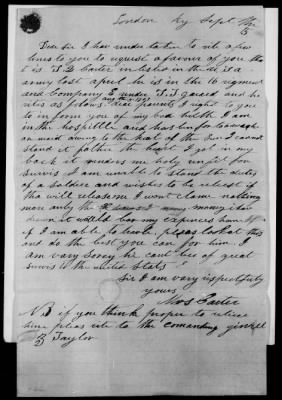 London Ky Sept the
5
Dear Sir I hav under taken to rite a few
lines to you to request a favor of you tha
t is. J. D. Carter inlisted in the u s
army last aprel he is in the 16 regment
and Company E under T. T. garard and he
rites as folows. dear parents I right to you
to in form you of my bad helth I am
in the hospittle and has bin for
owing to the heat of the sun I cannot
stand it father the heart I got in my
back it renders me holy unfit for
survis I am unable to stand the dutes
of a soldier and wishes to be releast if
tha will release me I wont clame nothing
more only the money
down it would bar my expences home
if I am able to travle. pleas look at this
and do the best you can for him. I
am vary sorry he cant bee of great
survis to the united Stats
Sir I am vary respectfully
yours
Mos Carter
NB if you think proper to reliese
him pleas rite to the comanding ginrell
Taylor